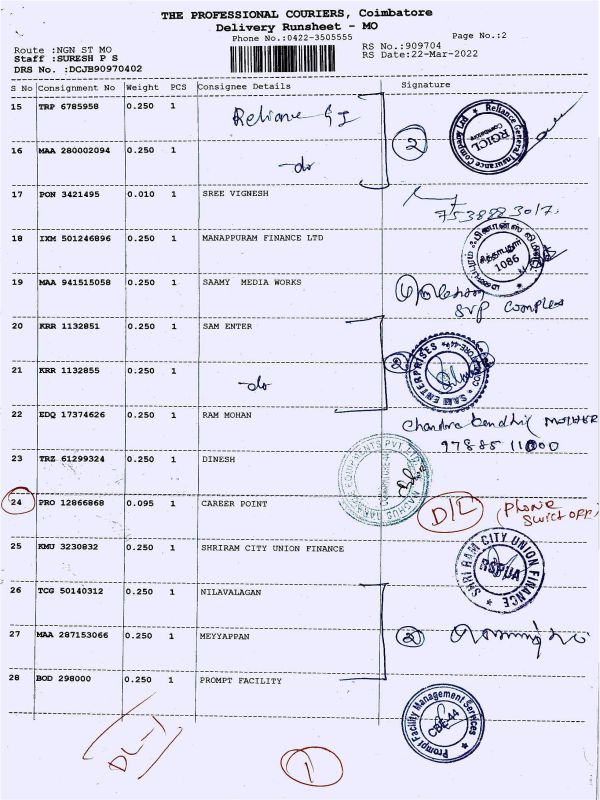 THE PROFESSIONAL COURIERS, Coimbatore
Delivery Runsheet - MO
Phone No.:0422-3505555
Page No.:2
Route :NGN ST MO
RS No.:909704
Staff :SURESH P S
RS Date:22-Mar-2022
DRS No. :DCJB90970402
S No Consignment No Weight PCS Consignee Details Signature
15 TRP 6785958 0.250 1 Reliance GI
2
Reliance General Insurance Company Ltd RGICL Coimbatore
16 MAA 280002094 0.250 1 -do
17 PON 3421495 0.010 1 SREE VIGNESH
7538883017
18 IXM 501246896 0.250 1 MANAPPURAM FINANCE LTD
1086
19 MAA 941515058 0.250 1 SAAMY MEDIA WORKS
SVP Complex
20 KRR 1132851 0.250 1 SAM ENTER
2
SAM ENTERPRISES COIMBATORE-44
21 KRR 1132855 0.250 1 -do
22 EDQ 17374626 0.250 1 RAM MOHAN
Chandra Gandhi MOTHER
97885 11000
23 TRZ 61299324 0.250 1 DINESH
GARAGE EQUIPMENTS PVT LTD
24 PRO 12866868 0.095 1 CAREER POINT
D/L (Phone
Swict OFF)
25 KMU 3230832 0.250 1 SHRIRAM CITY UNION FINANCE
SHRI RAM CITY UNION FINANCE
RSPUA
26 TCG 50140312 0.250 1 NILAVALAGAN
27 MAA 287153066 0.250 1 MEYYAPPAN
2
28 BOD 298000 0.250 1 PROMPT FACILITY
Prompt Facility Management Services
CBE-44
DL-1
1